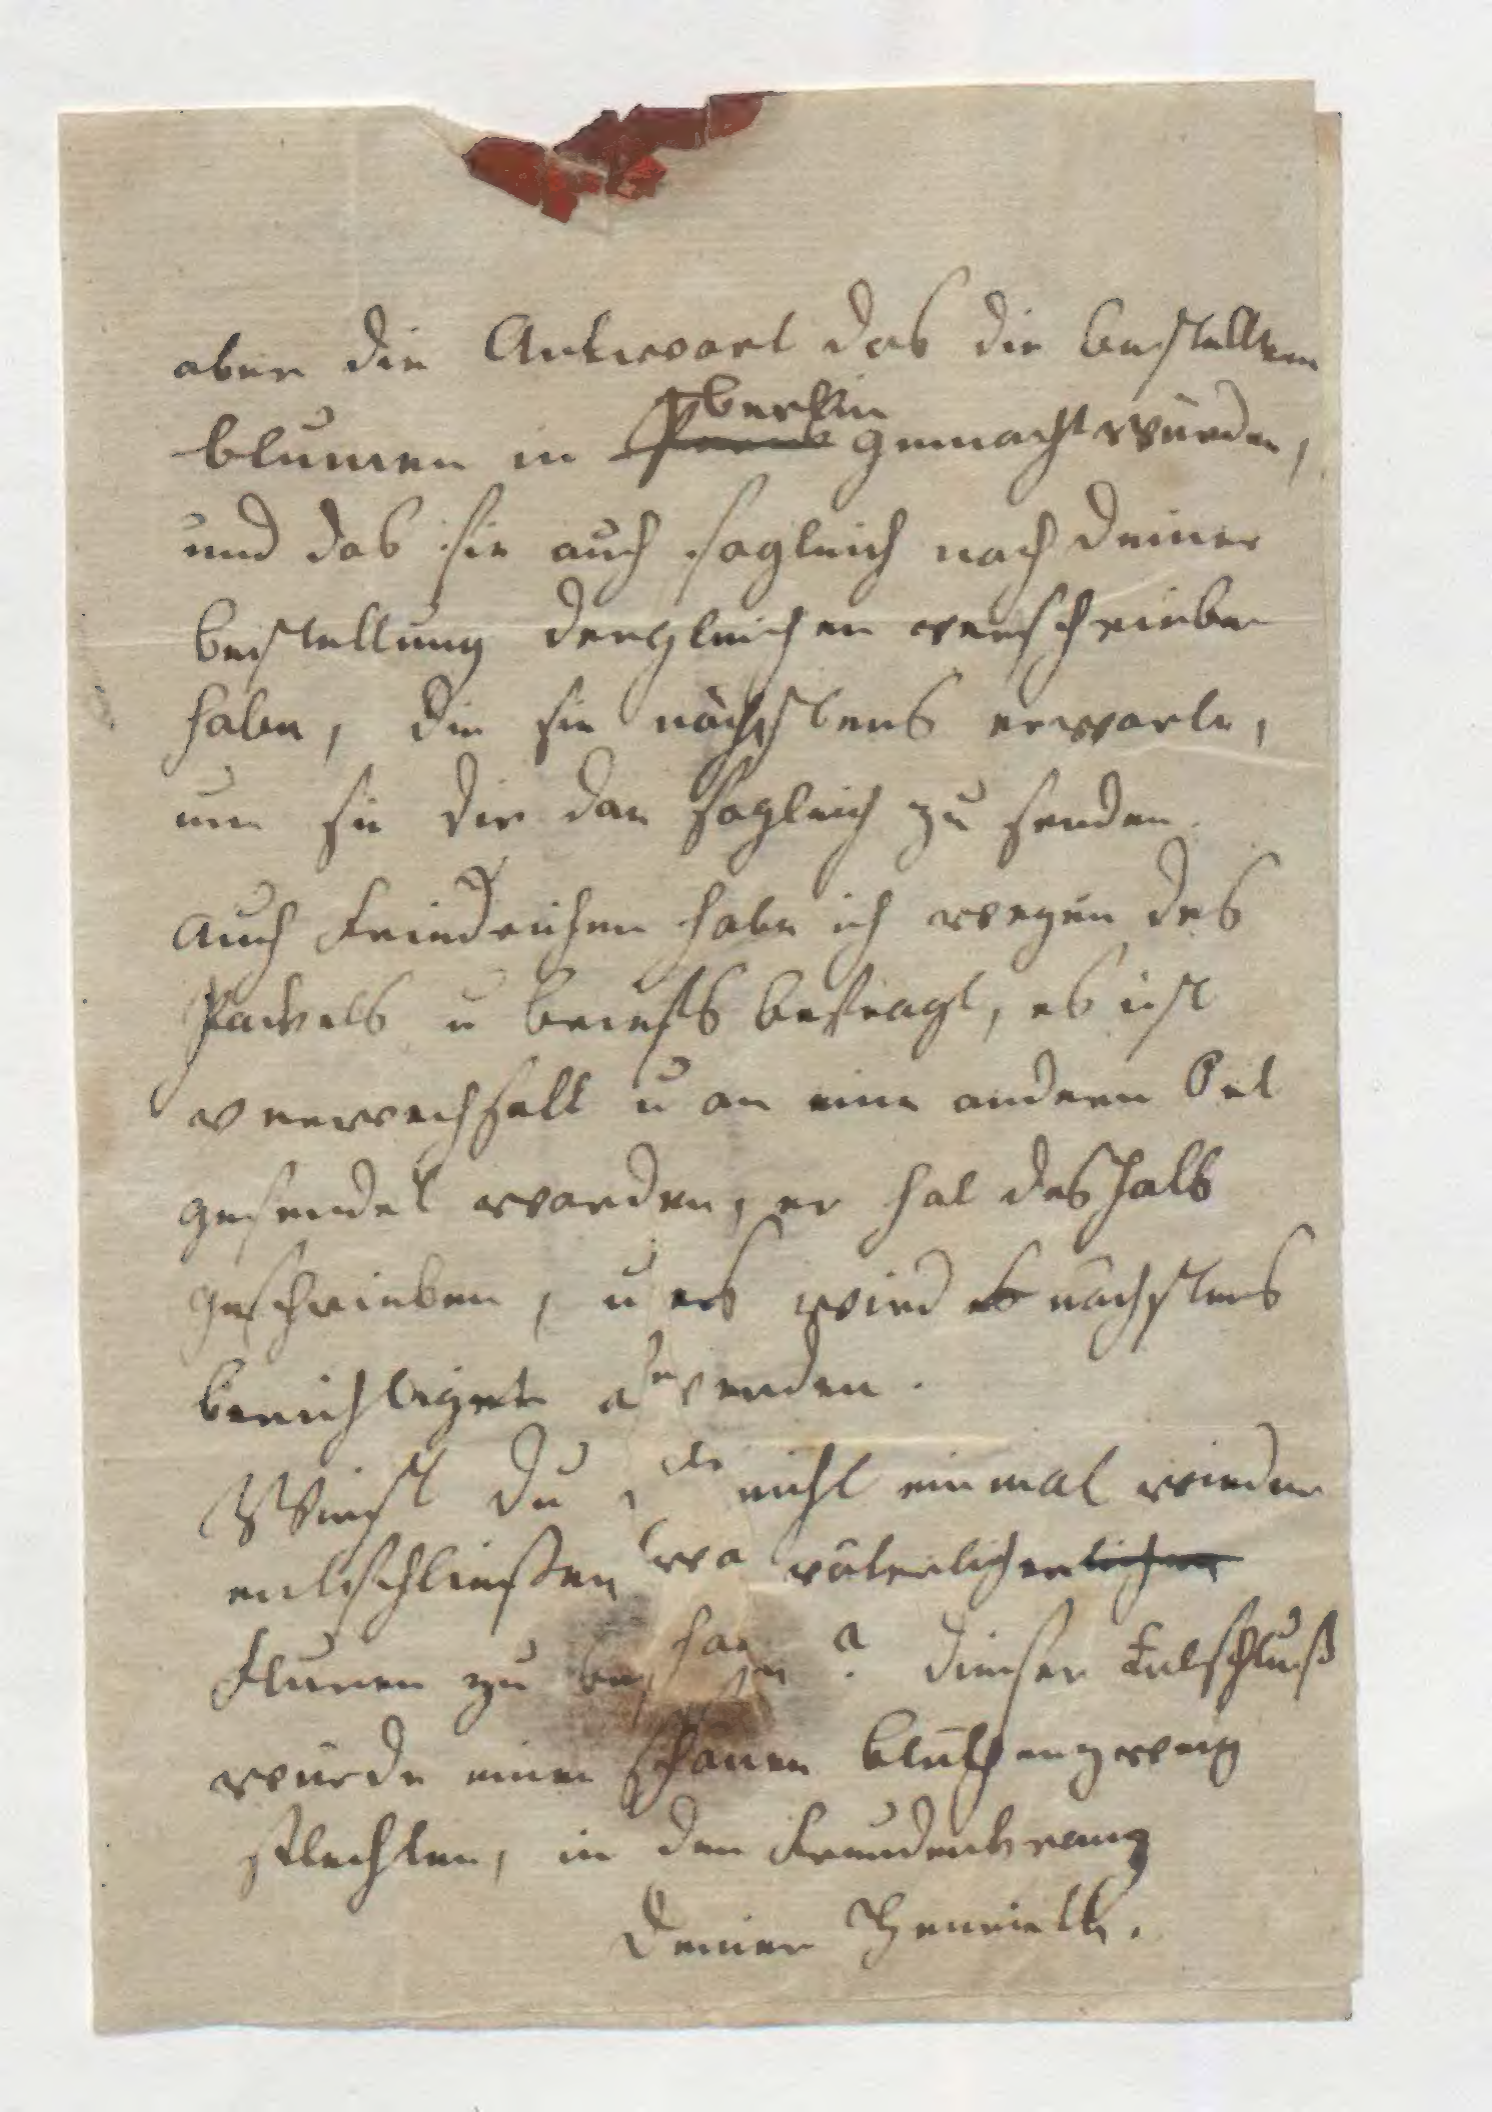 aber die Antwort das die bestellten
blumen in berlin gemacht würden,
und das sie auch sogleich nach deiner
bestellung dergleichen verschrieben
habe, die sie nächstens erwarte,
um sie dir dan sogleich zu senden.
auch Friedrichen habe ich wegen des
Packets u briefs befragt, es ist
verwechselt u an eine andern Ort
gesendet worden, er hat deshalb
geschrieben, u es wird nächstens
berichtiget werden.
Wirst du nicht einmal wieder
entschließen väterlichen
Fluren zu ? dieser Entschluß
würde einen schönen blüthenzweig
flechten, in den Freudenkranz
deiner Henriette.